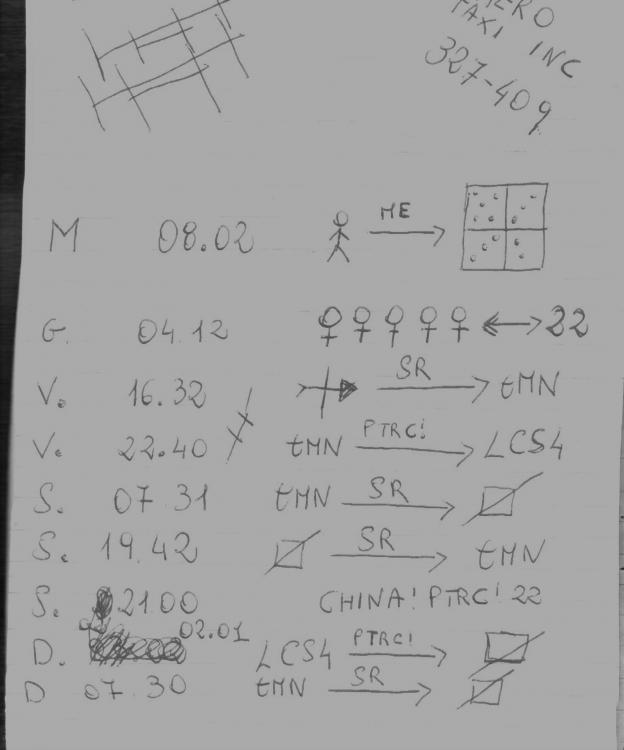 TAXI INC
327-409
M 08.02 ME
G. 04.12 22
V. 16.32 SR tMN
V. 22.40 tMN PTRC! LCS4
S. 07 31 tMN SR
S. 19.42 SR tMN
S. 21.00 CHINA! PTRC! 22
D. 02.01 LCS4 PTRC!
D 07.30 tMN SR